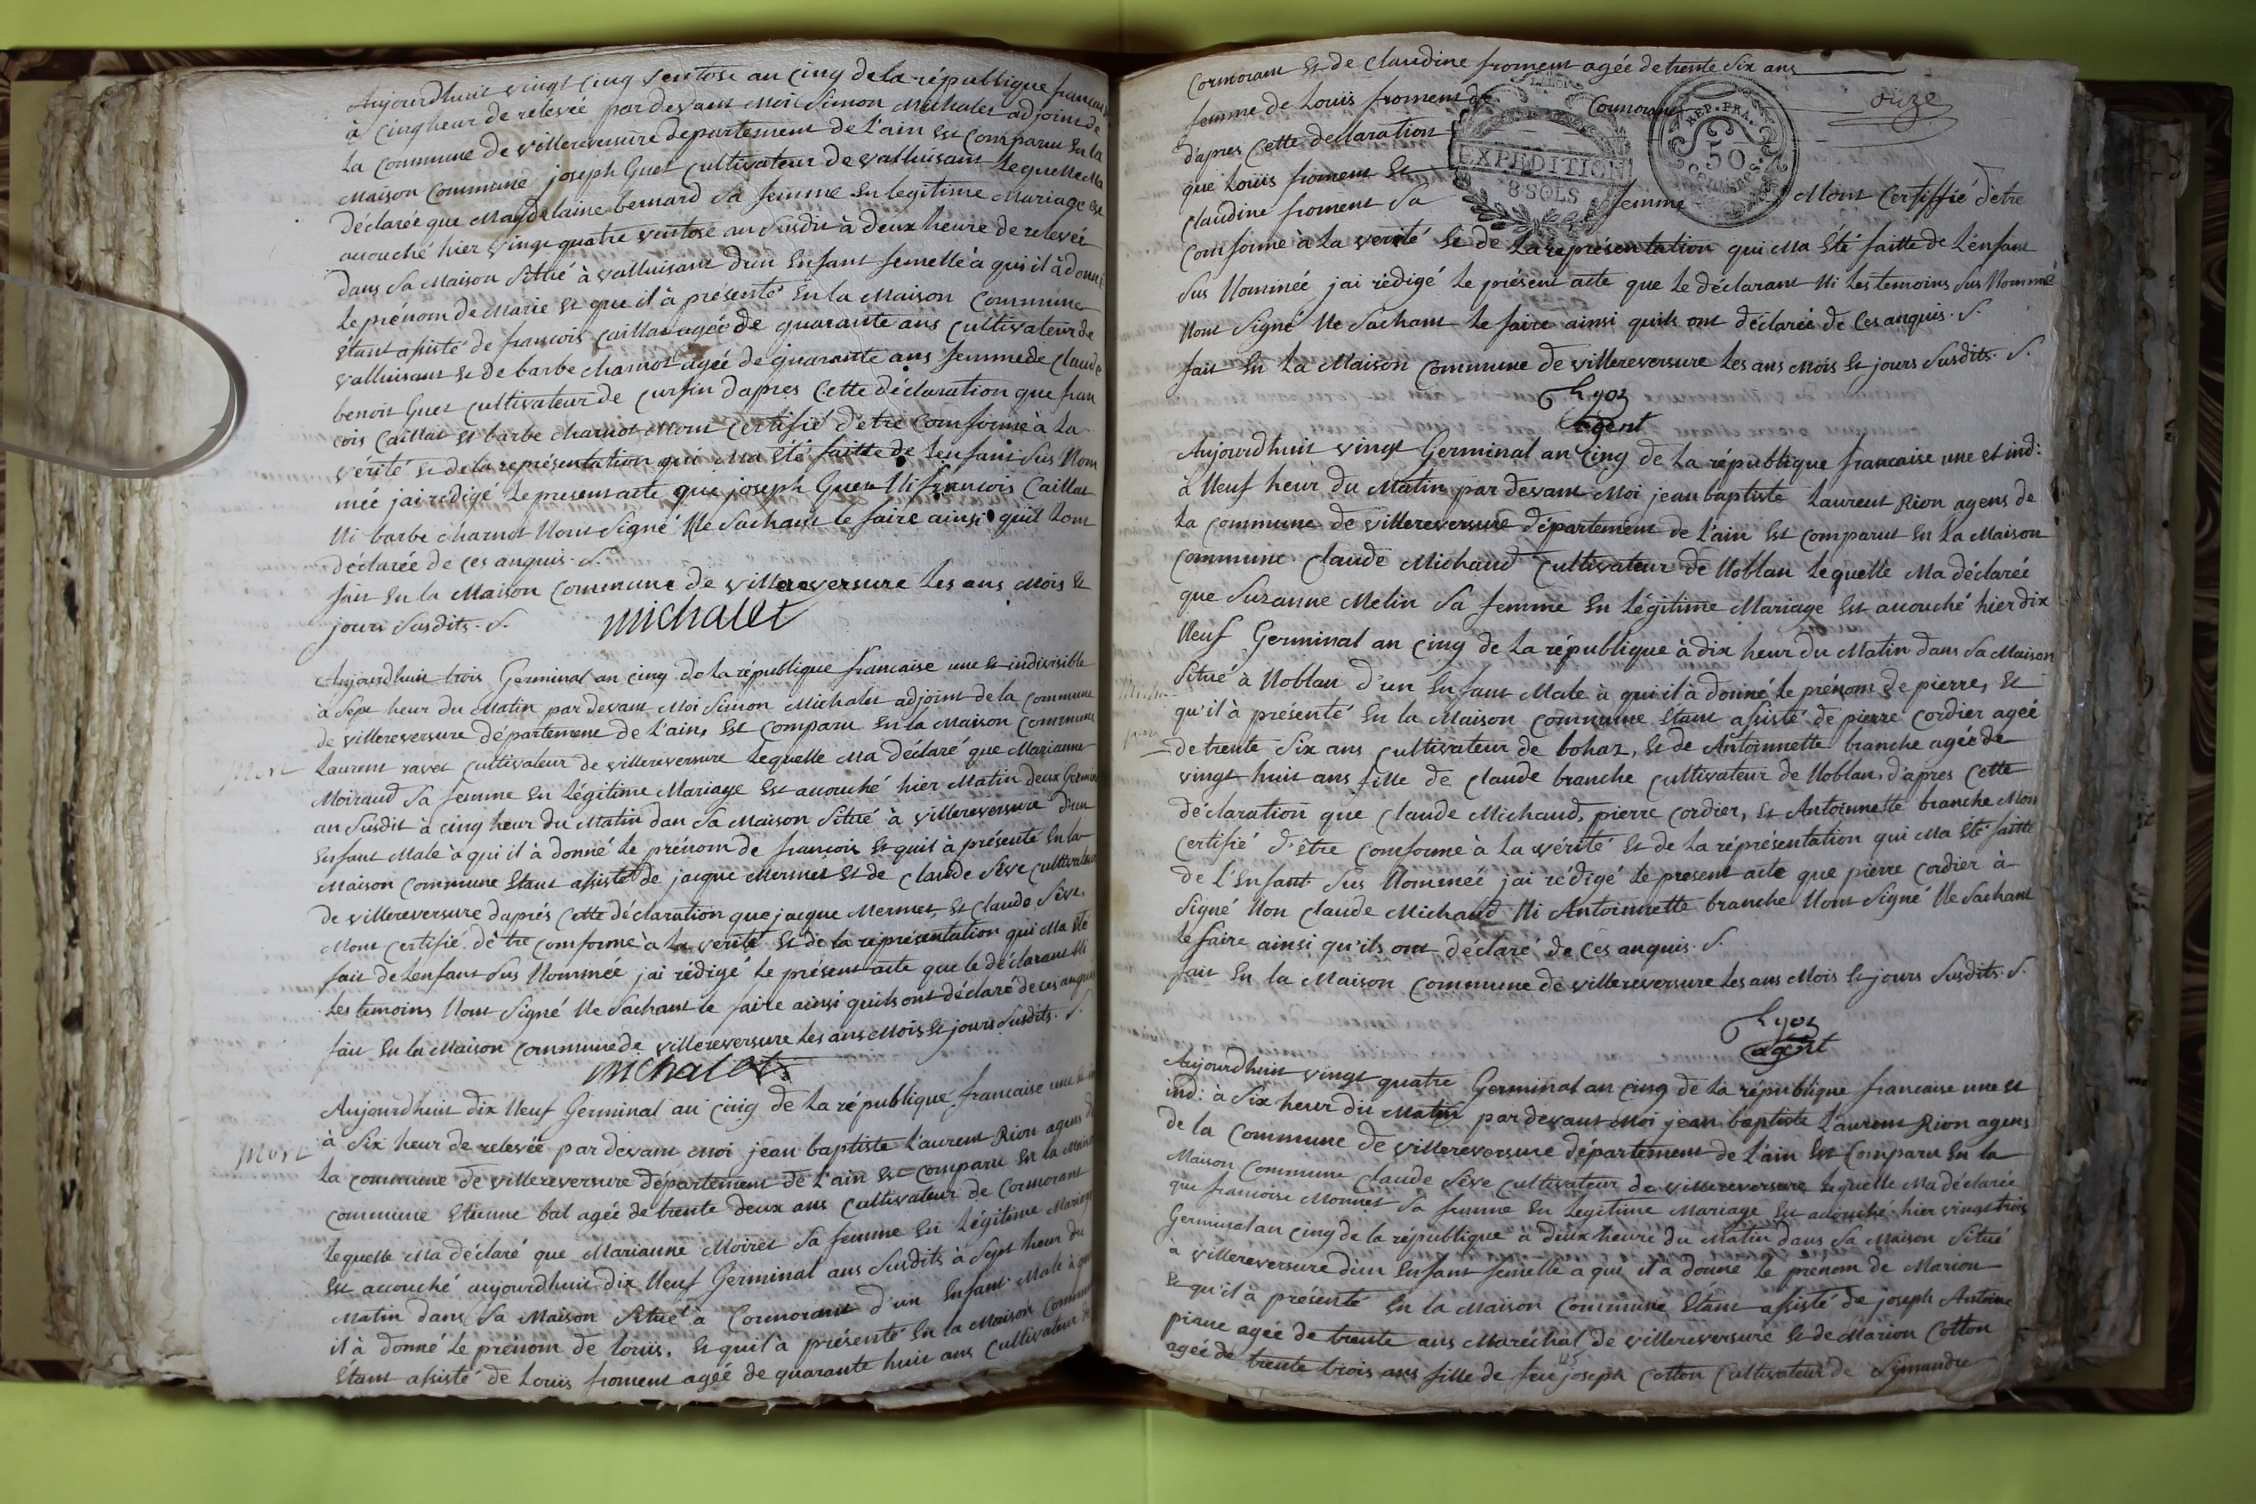 Aujourdhuit vingt cinq ventose an cinq dela république francaise
à cinq heur de relevée par devant Moi Simon Michalet adjoint de
la Commune de villereversure departement de l'ain Est Comparu En la
Maison Commune joseph Guet Cultivateur de valluisant lequelle Ma
déclarée que Magdelaine bernard sa femme En legitime Mariage est
acouché hier vingt quatre ventose an susdit à deux heure de relevée
dans sa Maison situé à valluisant dun Enfant femelle à qui il à donné
le prénom de Marie Et que il à présenté En la Maison Commune
Etant assisté de francois Caillat agée de quarante ans Cultivateur de
valluisant Et de barbe charnot agée de quarante ans femme de Claude
benoit Guet Cultivateur de Curfin dapres Cette déclaration que fran
cois Caillat Et barbe charnot Mont Certifié d'etre Comforme à la
vérité Et de la représentation qui Ma Eté faitte de l'enfant sus Nom
mée jai rédigé le present acte que joseph Guet Ni francois Caillat
Ni barbe charnot Nont signé Ne sachant le faire ainsi quil lont
déclarée de ces anquis. S.
fait En la Maison Commune de villereversure les ans Mois Et
jours susdits. S.
michalet
Aujourdhuit trois Germinal an cinq de la république francaise une Et indivisible
à sept heur du Matin par devant Moi Simon Michalet adjoint de la Commune
de villereversure département de l'ain, Est Comparu En la Maison Commune
mort
Laurent ravet Cultivateur de villereversure lequelle Ma déclaré que Marianne
Moiraud sa femme En légitime Mariage Est acouché hier Matin deux Germin
an susdit à cinq heur du Matin dan sa Maison situé à villereversure d'un
Enfant Male à qui il à donné le prénom de francois Et quil à présenté En la
Maison Commune Etant assisté de jacque Mermet Et de Claude Sève Cultivateur
de villereversure daprés Cette déclaration que jacque Mermet, Et Claude Sève
Mont Certifié d'être Comforme à la verité Et de la représentation qui Ma Eté
fait de lenfant sus Nommée jai rédigé le présent acte que le déclarant Ni
les temoins Nont signé Ne sachant le faire ainsi quils ont déclaré de ces anquis
fait En la Maison Commune de villereversure les ans Mois Et jours susdits. S.
michalet
Aujourdhuit dix Neuf Germinal an cinq de la république francaise une
mort
à six heur de relevée par devant Moi jean baptiste Laurent Rion agens de
la Commune de villereversure département de l'ain Est Comparu En la Maison
Commune Etienne bal agée de trente deux ans Cultivateur de Cormorant
lequelle Ma déclaré que Marianne Moiret sa femme En légitime Mariage
Est acouché aujourdhuit dix Neuf Germinal ans susdits à sept heur du
Matin dans sa Maison situé à Cormorant d'un Enfant Male à qui
il à donné le prénom de Louis, Et quil à présenté En la Maison Commune
Etant assisté de Louis froment agée de quarante huit ans Cultivateur de
Cormorant Et de Claudine froment agée de trente six ans
femme de Louis froment de Cormorant
d'apres Cette declaration
que Louis froment Et
Claudine froment sa femme Mont Certiffié d'etre
EXPEDITION
8 SOLS
REP. FRA.
50
Comforme à la verité Et de la représentation qui Ma Eté faitte de l'enfant
sus Nommée jai rédigé le présent acte que le déclarant Ni les temoins sus Nommé
Nont signé Ne sachant le faire ainsi quils ont déclarée de Ces anquis. S.
fait En la Maison Commune de villereversure les ans Mois Et jours susdits. S.
Ryon
agent
Aujourdhuit vingt Germinal an Cinq de la république francaise une et ind:
à Neuf heur du Matin par devant Moi jean baptiste Laurent Rion agens de
la Commune de villereversure département de l'ain Est Comparut En la Maison
Commune Claude Michaud Cultivateur de Noblan lequelle Ma déclarée
que Suzanne Melin sa femme En légitime Mariage Est acouché hier dix
Neuf Germinal an cinq de la république à dix heur du Matin dans sa Maison
situé à Noblan d'un Enfant Male à qui il à donné le prénom de pierre, Et
qu'il à présenté En la Maison Commune Etant assisté de pierre Cordier agée
de trente six ans Cultivateur de bohaz, Et de Antoinnette branche agée de
vingt huit ans fille de Claude branche Cultivateur de Noblan, d'apres Cette
déclaration que Claude Michaud, pierre Cordier, Et Antoinnette branche Mon
Certifié d'être Comforme à la vérité Et de la représentation qui Ma Eté faitte
de l'Enfant sus Nommée jai rédigé le present acte que pierre Cordier à
signé Non Claude Michaud Ni Antoinnette branche Nont signé Ne sachant
le faire ainsi qu'ils ont déclaré de Ces anquis. S.
fait En la Maison Commune de villereversure les ans Mois Et jours susdits. S.
Ryon
agent
Aujourdhuit vingt quatre Germinal an cinq de la république francaise une et
ind: à six heur du Matin par devant Moi jean baptiste Laurent Rion agens
de la Commune de villereversure département de l'ain Est Comparu En la
Maison Commune Claude Sève Cultivateur de villereversure lequelle Ma déclarée
que francoise Monnet sa femme En legitime Mariage Est acouché hier vingt trois
Germinal an cinq de la république à deux heure du Matin dans sa Maison situé
à villereversure d'un Enfant femelle à qui il à donné le prenom de Marion
Et qu'il à présenté En la Maison Commune Etant assisté de joseph Antoine
agée de trente ans Maréchal de villereversure Et de Marion Cotton
agée de trente trois ans fille de feu joseph Cotton Cultivateur de Simandre